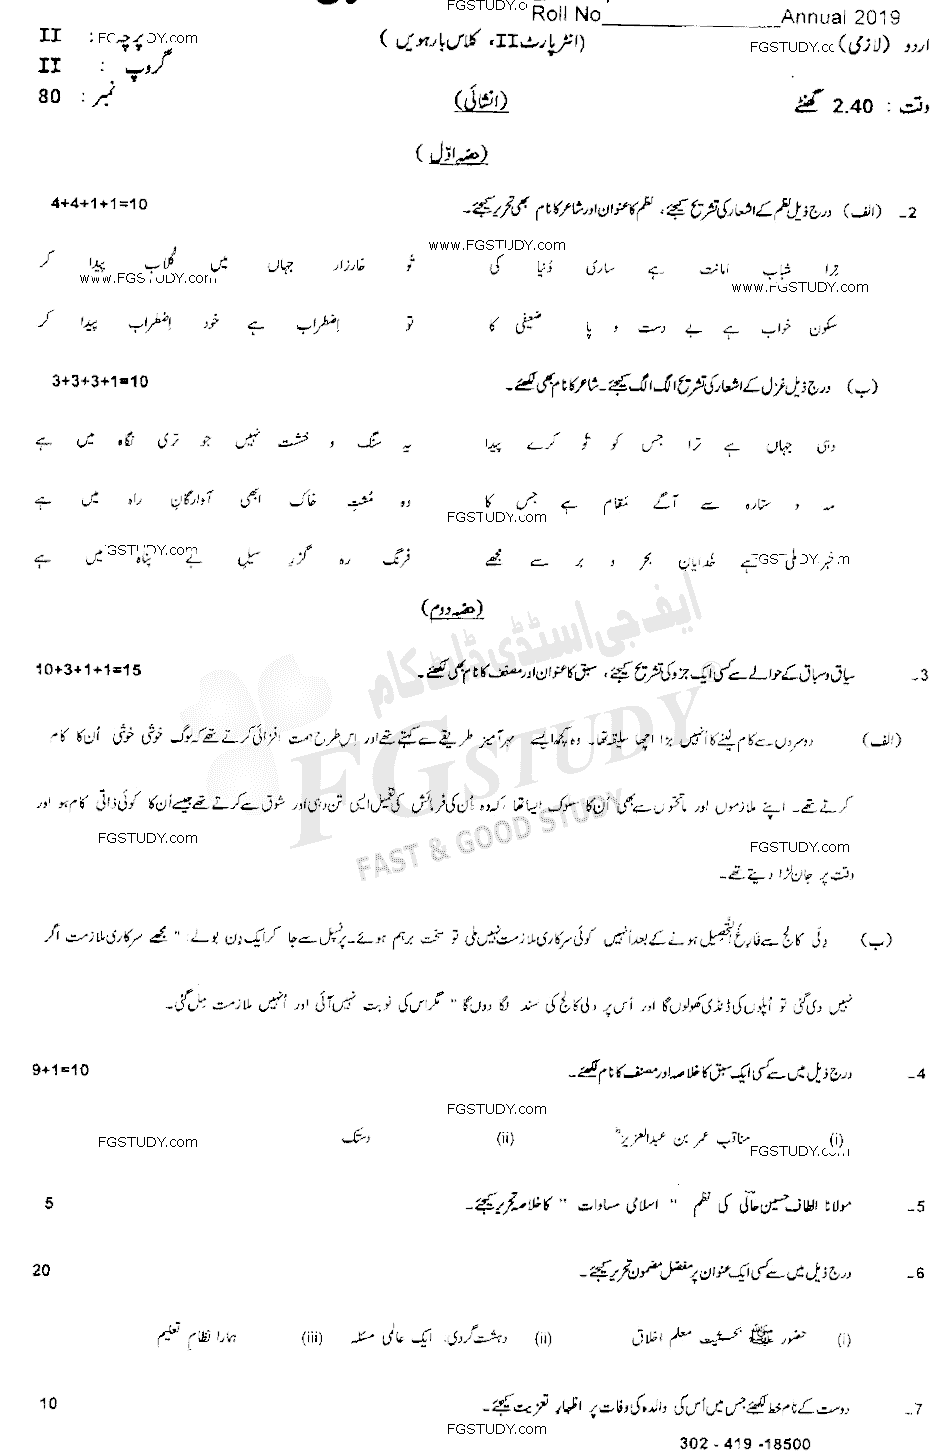 FGSTUDY.c
Roll No____________ Annual 2019
اردو (لازمی) FGSTUDY.cc (انٹر پارٹ II، کلاس بارہویں) پرچہ: II FGSTUDY.com
گروپ : II
وقت : 2.40 گھنٹے (انشائی) نمبر : 80
(حصہ اوّل)
2- (الف) درج ذیل نظم کے اشعار کی تشریح کیجئے، نظم کا عنوان اور شاعر کا نام بھی تحریر کیجئے۔ 4+4+1+1=10
www.FGSTUDY.com
ترا شباب امانت ہے ساری دُنیا کی تُو خارزار جہاں میں گلاب پیدا کر
www.FGSTUDY.com www.FGSTUDY.com
سکون خواب ہے بے دست و پا ضعیفی کا تو اِضطراب ہے خود اِضطراب پیدا کر
(ب) درج ذیل غزل کے اشعار کی تشریح الگ الگ کیجئے۔ شاعر کا نام بھی لکھئے۔ 3+3+3+1=10
وہی جہاں ہے ترا جس کو تُو کرے پیدا یہ سنگ و خشت نہیں جو تری نگاہ میں ہے
مہ و ستارہ سے آگے مقام ہے جس کا وہ مُشتِ خاک ابھی آوارگانِ راہ میں ہے
FGSTUDY.com
خبر ملی ہے خدایانِ بحر و بر سے مجھے فرنگ رہ گزرِ سیلِ بے پناہ میں ہے
(حصہ دوم)
3- سیاق و سباق کے حوالے سے کسی ایک جزو کی تشریح کیجئے، سبق کا عنوان اور مصنف کا نام بھی لکھئے۔ 10+3+1+1=15
ایف جی اسٹڈی ڈاٹ کام
FG STUDY
FAST & GOOD STUDY
(الف) دوسروں سے کام لینے کا اُنہیں بڑا اچھا سلیقہ تھا۔ وہ کچھ ایسے مہر آمیز طریقے سے کہتے تھے اور اِس طرح ہمت افزائی کرتے تھے کہ لوگ خوشی خوشی اُن کا کام
کرتے تھے۔ اپنے ملازموں اور ماتحتوں سے بھی اُن کا سلوک ایسا تھا کہ وہ اُن کی فرمائش کی تعمیل ایسی تن دہی اور شوق سے کرتے تھے جیسے اُن کا کوئی ذاتی کام ہو اور
FGSTUDY.com FGSTUDY.com
وقت پر جان لڑا دیتے تھے۔
(ب) دِلّی کالج سے فارغ التحصیل ہونے کے بعد اُنہیں کوئی سرکاری ملازمت نہیں ملی تو سخت برہم ہوئے۔ پرنسپل سے جا کر ایک دِن بولے: " مجھے سرکاری ملازمت اگر
نہیں دی گئی تو اُپلوں کی ڈنڈی کھولوں گا اور اُس پر دلی کالج کی سند لگا دوں گا " مگر اس کی نوبت نہیں آئی اور اُنہیں ملازمت مِل گئی۔
4- درج ذیل میں سے کسی ایک سبق کا خلاصہ اور مصنف کا نام لکھئے۔ 9+1=10
FGSTUDY.com
(i) مناقب عمر بن عبدالعزیزؒ (ii) دستک
FGSTUDY.com FGSTUDY.com
5- مولانا الطاف حسین حالی کی نظم " اسلامی مساوات " کا خلاصہ تحریر کیجئے۔ 5
6- درج ذیل میں سے کسی ایک عنوان پر مفصل مضمون تحریر کیجئے۔ 20
(i) حضور ﷺ بحیثیت معلم اخلاق (ii) دہشت گردی، ایک عالمی مسئلہ (iii) ہمارا نظامِ تعلیم
7- دوست کے نام خط لکھئے جس میں اُس کی والدہ کی وفات پر اظہارِ تعزیت کیجئے۔ 10
FGSTUDY.com
302 - 419 -18500